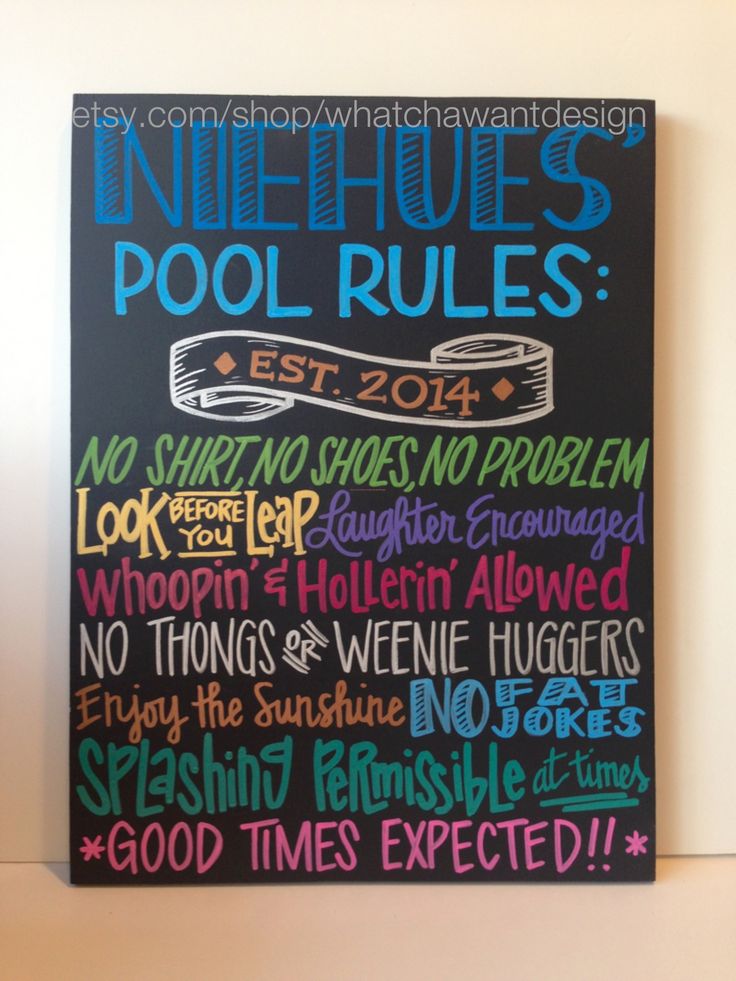 etsy.com/shop/whatchawantdesign
NIEHUES'
POOL RULES:
EST. 2014
NO SHIRT, NO SHOES, NO PROBLEM
LOOK BEFORE YOU LEAP Laughter Encouraged
Whoopin' & Hollerin' Allowed
NO THONGS OR WEENIE HUGGERS
Enjoy the Sunshine NO FAT JOKES
Splashing Permissible at times
*GOOD TIMES EXPECTED!!*